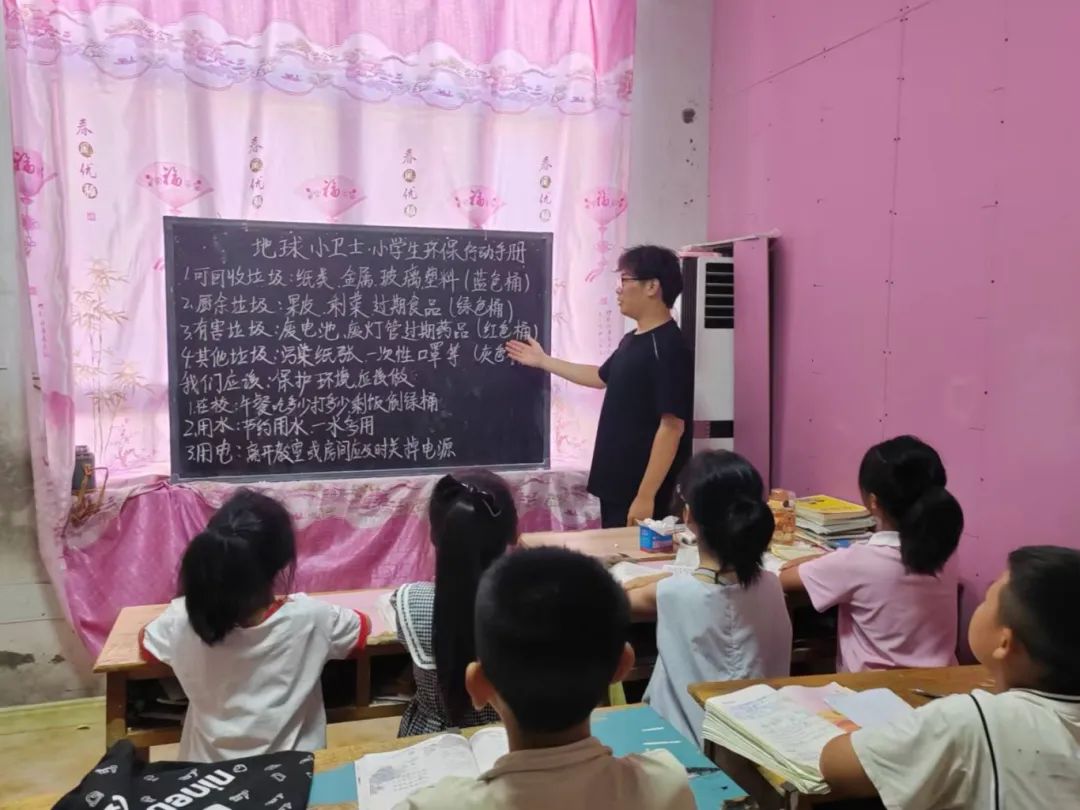 春风优福
春风优福
春风优福
春风优福
福
福
福
福
地球小卫士·小学生环保行动手册
1.可回收垃圾:纸类、金属、玻璃塑料(蓝色桶)
2.厨余垃圾:果皮、剩菜、过期食品(绿色桶)
3.有害垃圾:废电池、废灯管过期药品(红色桶)
4.其他垃圾:污染纸张、一次性口罩等(灰色
我们应该:保护环境,应该做
1.在校:午餐吃多少打多少,剩饭倒绿桶
2.用水:节约用水,一水多用
3.用电:离开教室或房间应及时关掉电源